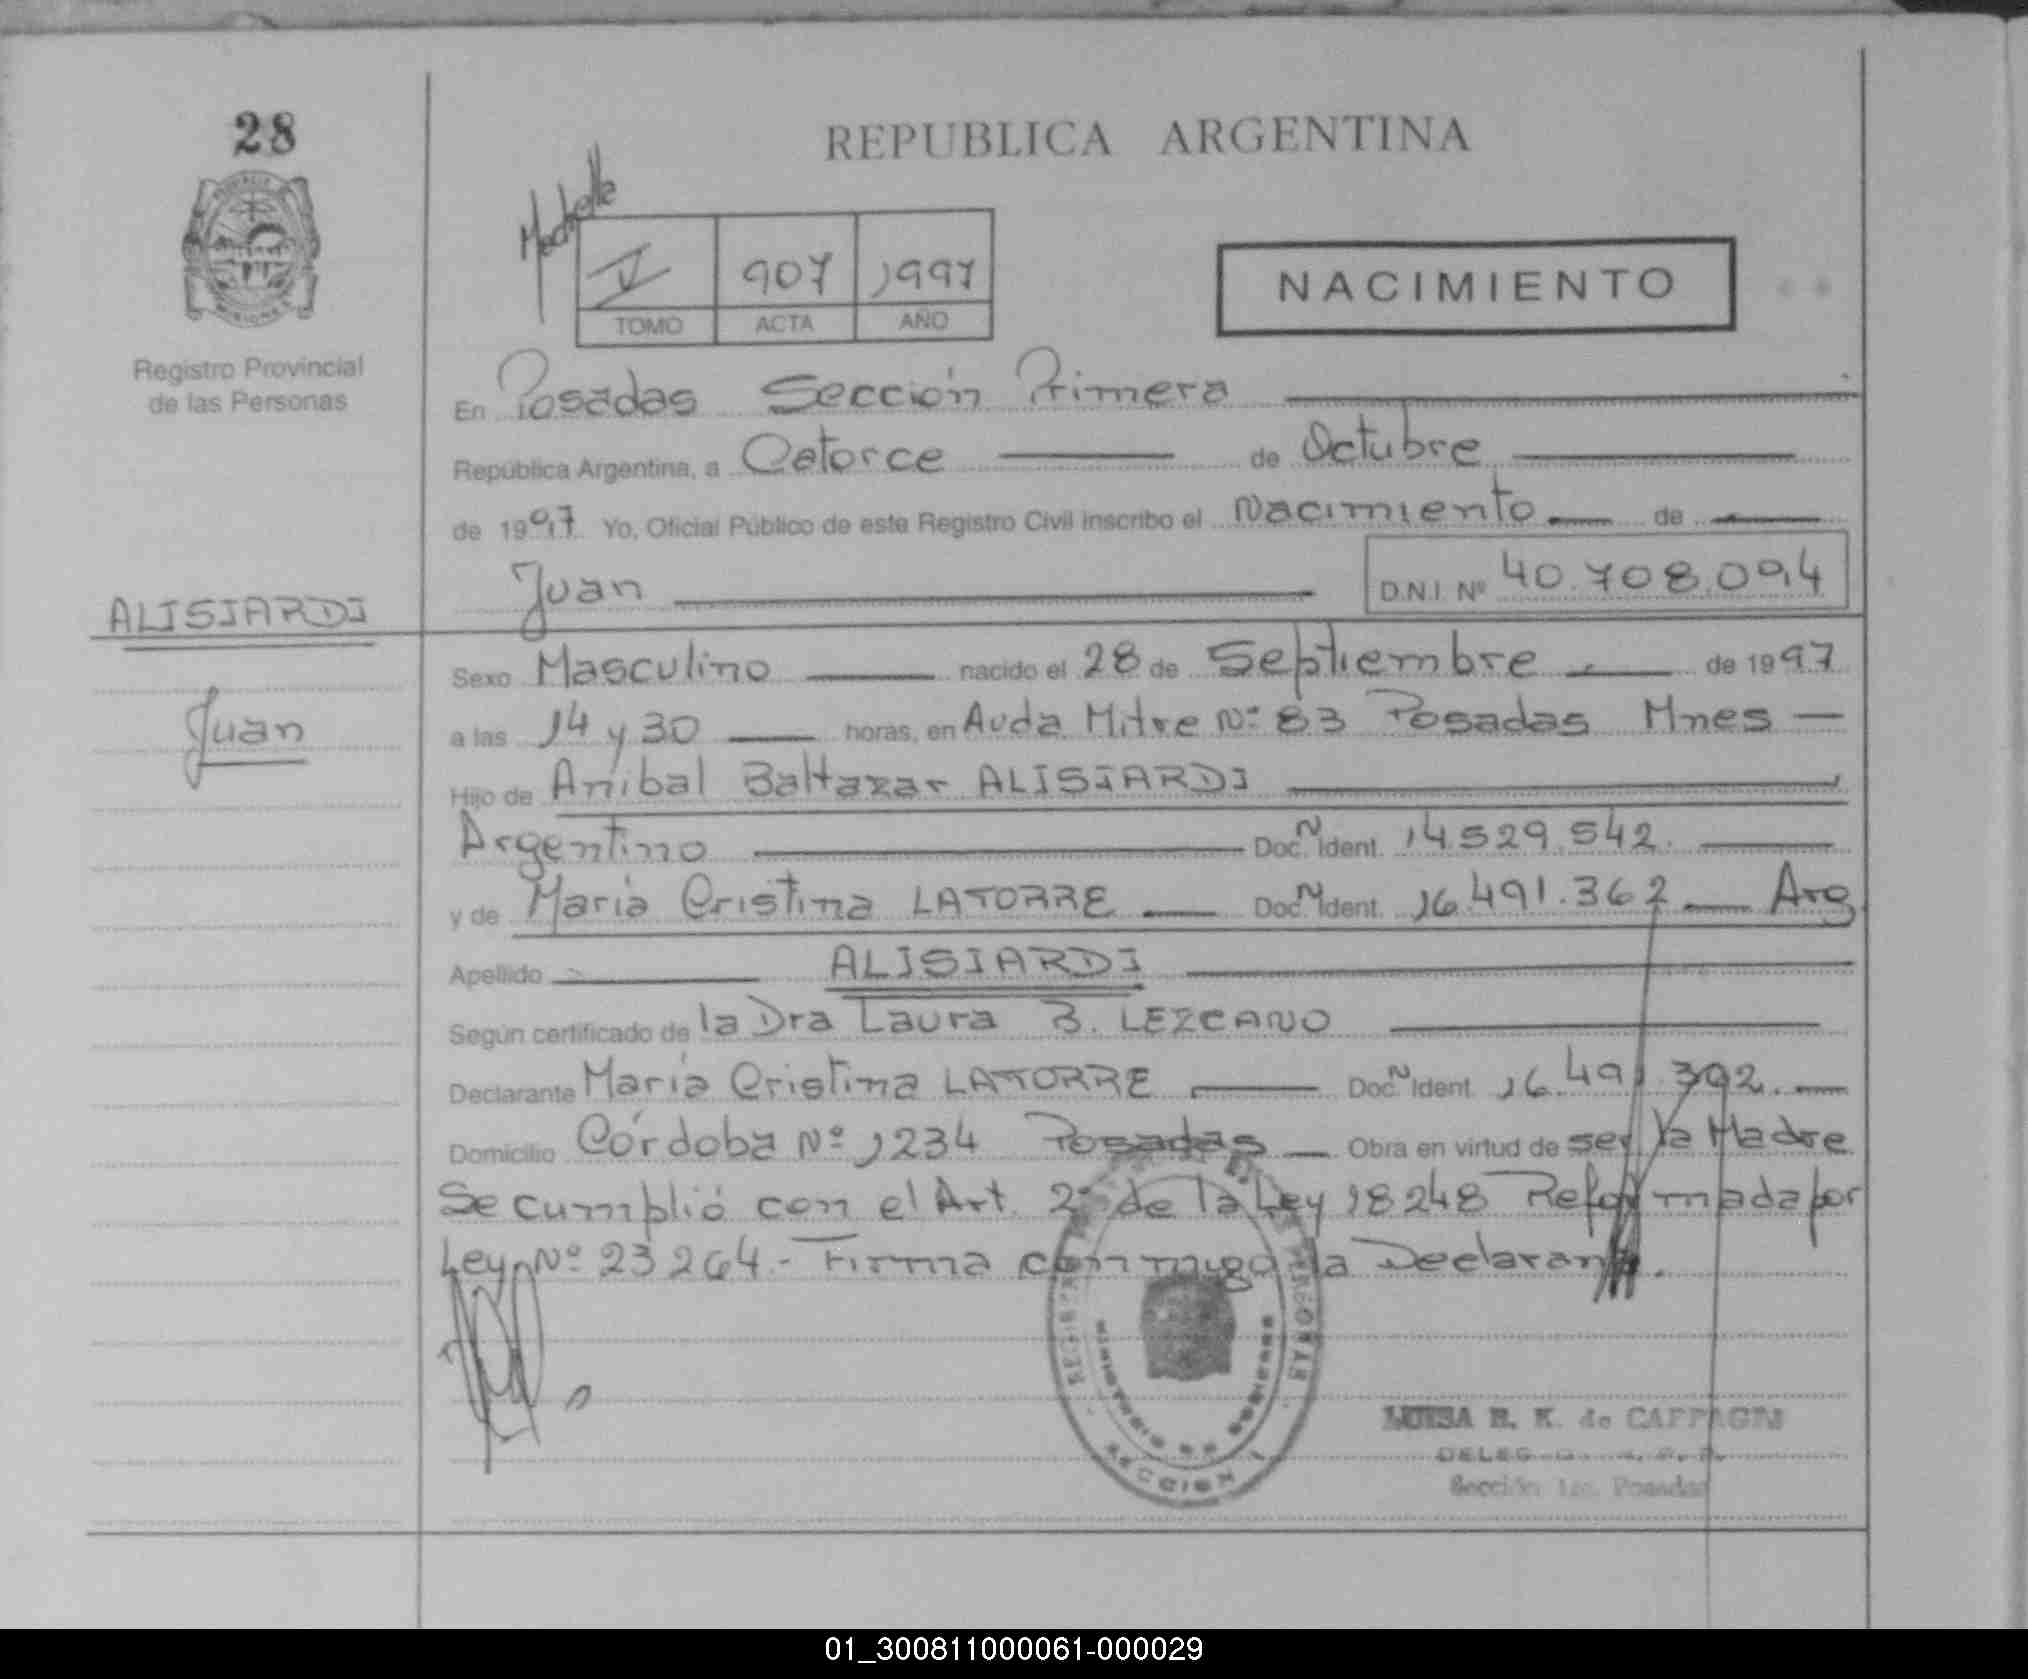 28
REPUBLICA ARGENTINA
V 907 1997
TOMO ACTA AÑO
NACIMIENTO
Registro Provincial
de las Personas
En Posadas Sección Primera
República Argentina, a Catorce de Octubre
de 1997 Yo, Oficial Público de este Registro Civil inscribo el Nacimiento de
Juan D.N.I. Nº 40.708.094
ALISIARDI
Juan
Sexo Masculino nacido el 28 de Septiembre de 1997
a las 14 y 30 horas, en Avda Mitre Nº 83 Posadas Mnes
Hijo de Anibal Baltazar ALISIARDI
Argentino Doc. N Ident. 14.529.542.
y de María Cristina LATORRE Doc. N Ident. 16.491.362 Arg
Apellido ALISIARDI
Según certificado de la Dra Laura B. LEZCANO
Declarante María Cristina LATORRE Doc. N Ident. 16.491.392.
Domicilio Córdoba Nº 1234 Posadas Obra en virtud de ser la Madre
Se cumplió con el Art. 2º de la Ley 18248 Reformada por
Ley Nº 23264.- Firma conmigo la Declarante.
MINISTERIO DE GOBIERNO
SECCION 1
LUISA R. K. de
Sección 1ra. Posadas
01_300811000061-000029